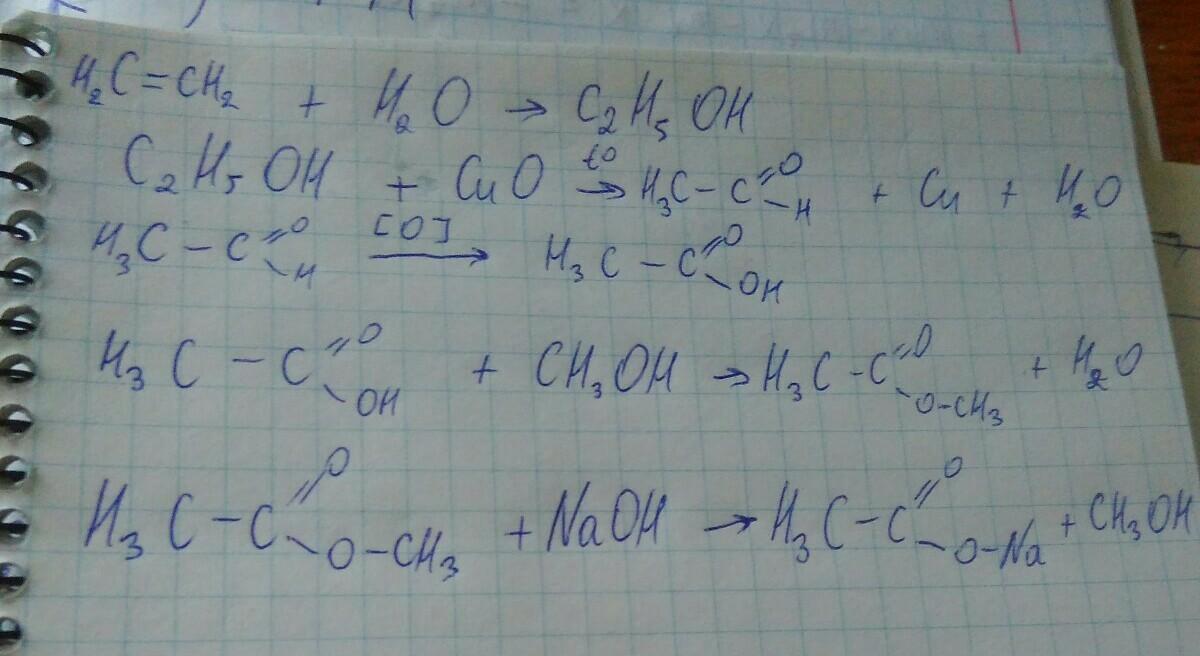 H₂C=CH₂ + H₂O → C₂H₅OH
C₂H₅OH + CuO →(t°) H₃C-C(=O)-H + Cu + H₂O
H₃C-C(=O)-H →([O]) H₃C-C(=O)-OH
H₃C-C(=O)-OH + CH₃OH → H₃C-C(=O)-O-CH₃ + H₂O
H₃C-C(=O)-O-CH₃ + NaOH → H₃C-C(=O)-O-Na + CH₃OH